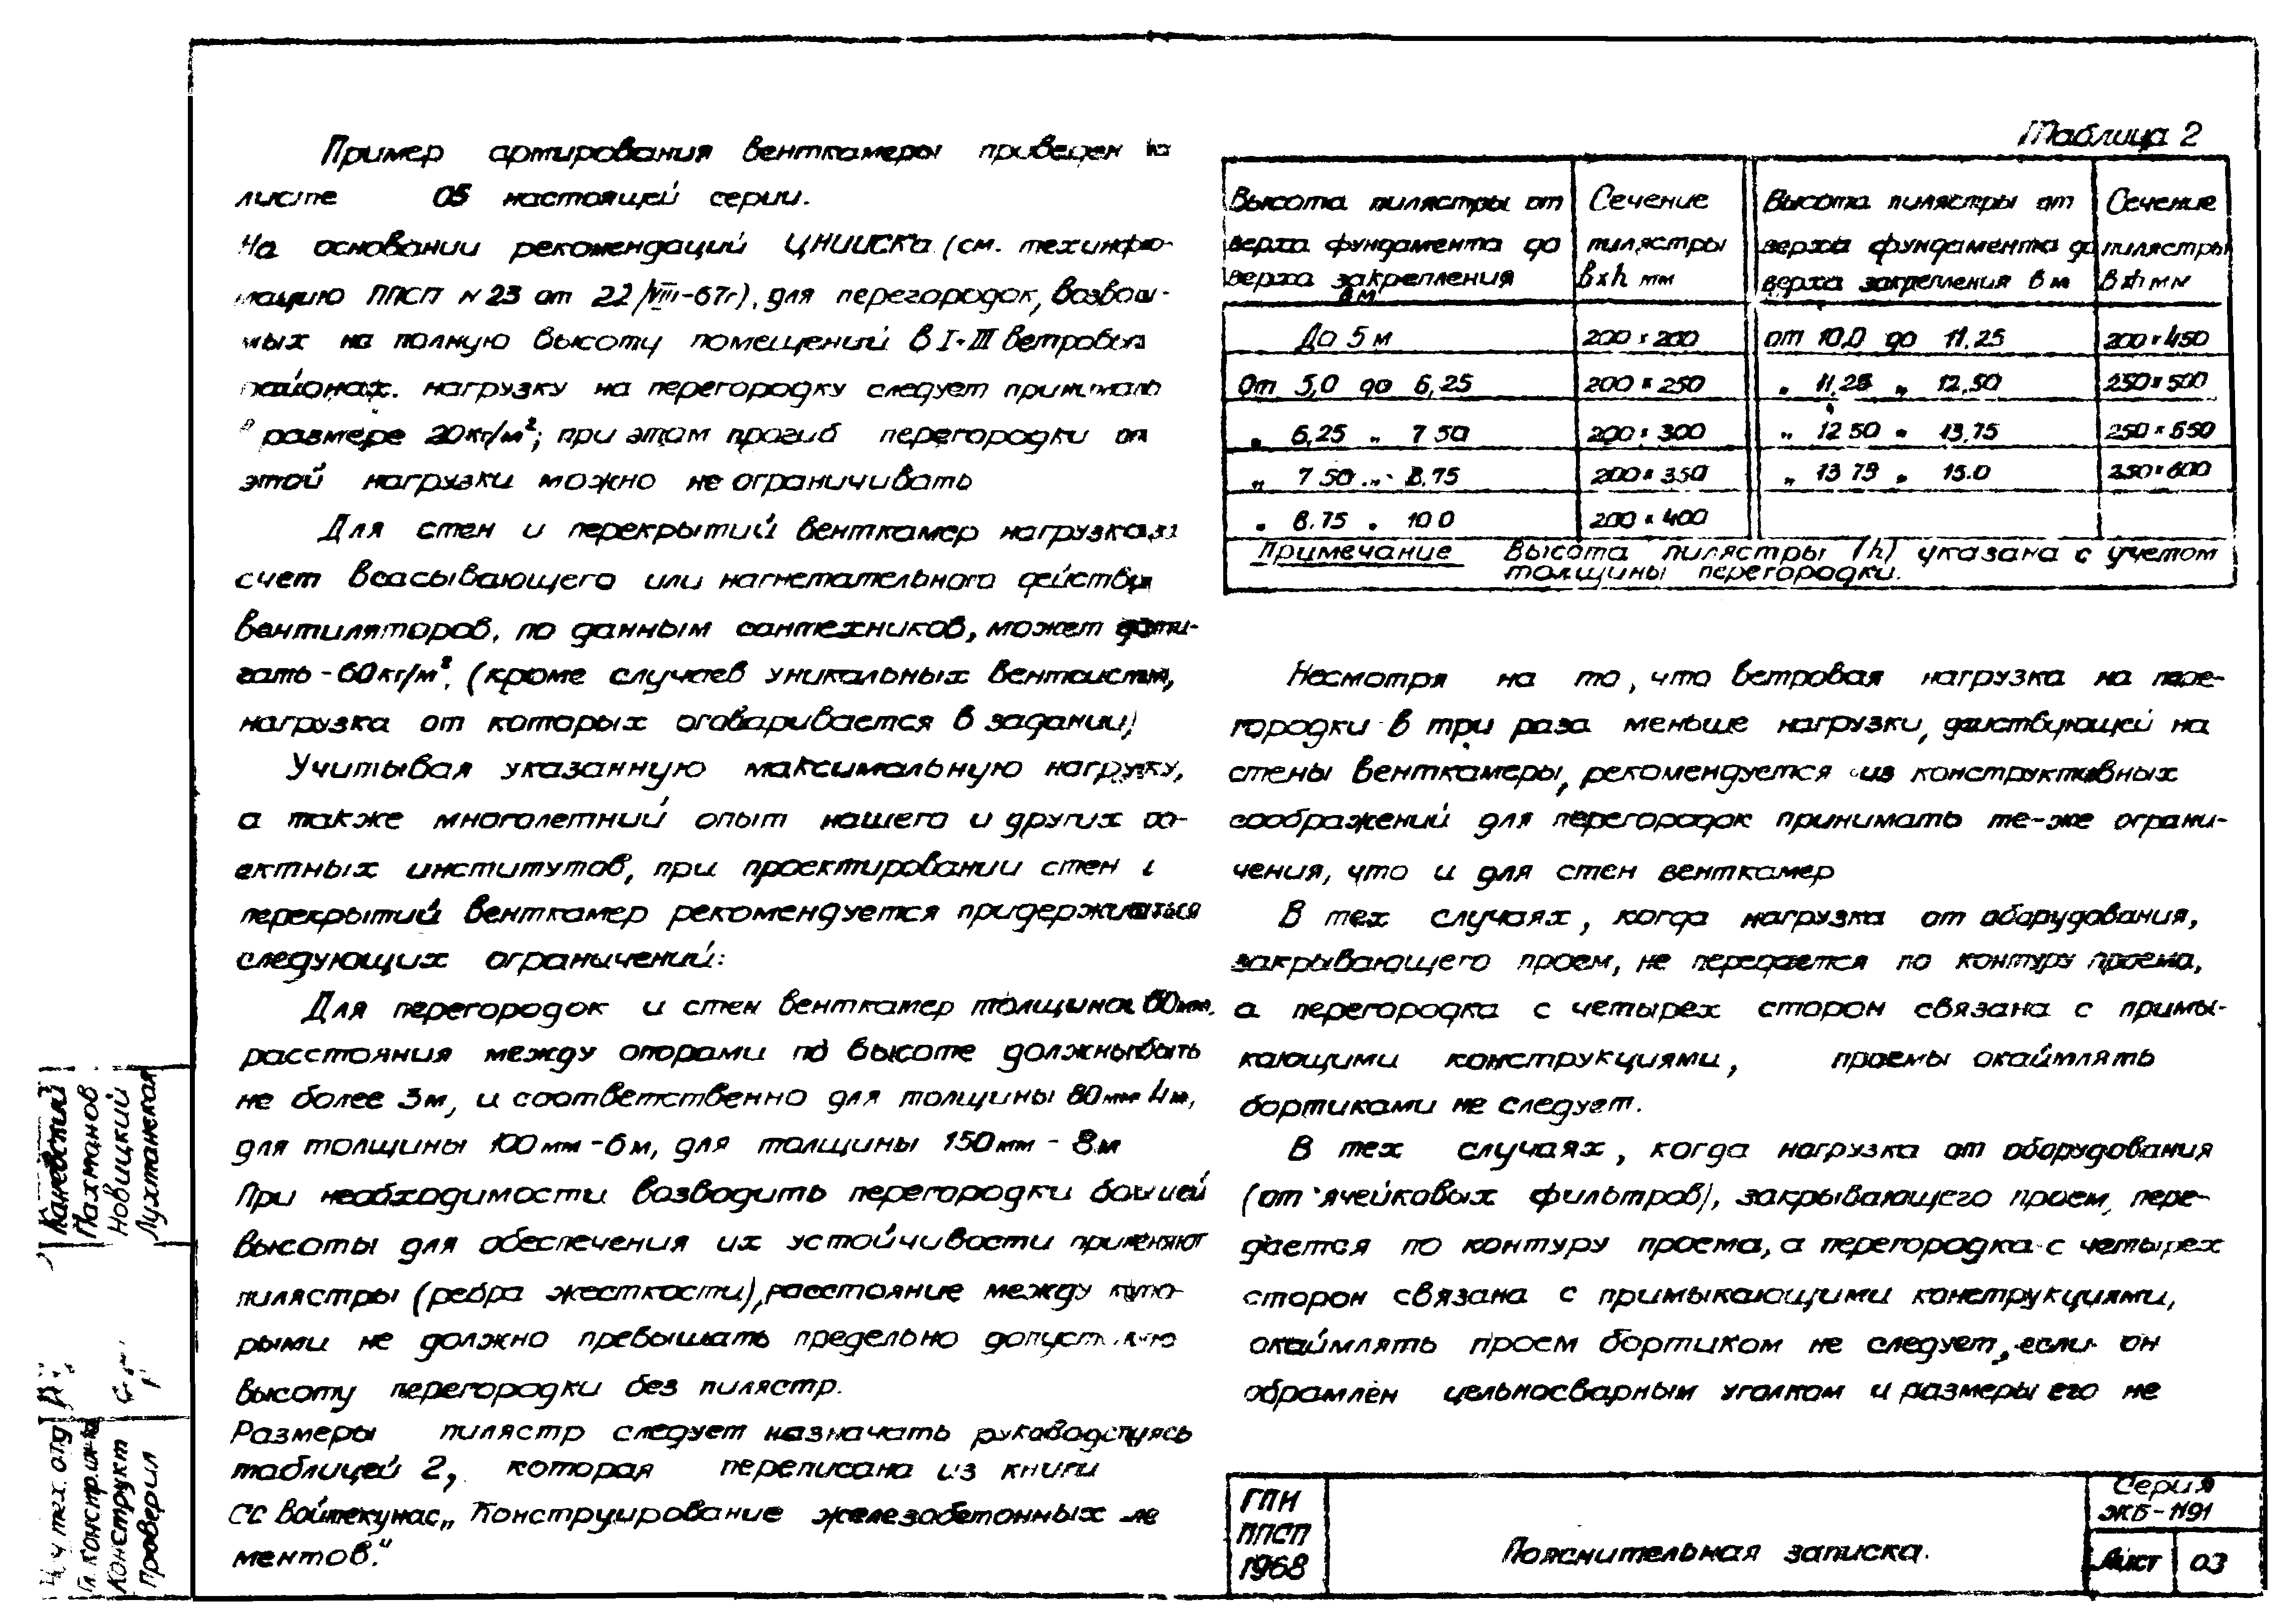 Пример армирования венткамеры приведен на
листе 05 настоящей серии.
На основании рекомендаций ЦНИИСКа (см. техинфор-
мацию ППСП N 23 от 22/VIII-67г), для перегородок, возводи-
мых на полную высоту помещений в I-III ветровых
районах. нагрузку на перегородку следует принимать
в размере 20кг/м²; при этом прогиб перегородки от
этой нагрузки можно не ограничивать
Для стен и перекрытий венткамер нагрузка за
счет всасывающего или нагнетательного действия
вентиляторов, по данным сантехников, может дости-
гать - 60кг/м², (кроме случаев уникальных вентсистем,
нагрузка от которых оговаривается в задании)
Учитывая указанную максимальную нагрузку,
а также многолетний опыт нашего и других про-
ектных институтов, при проектировании стен и
перекрытий венткамер рекомендуется придерживаться
следующих ограничений:
Для перегородок и стен венткамер толщиной 60мм.
расстояния между опорами по высоте должны быть
не более 3м, и соответственно для толщины 80мм 4м,
для толщины 100мм - 6м, для толщины 150мм - 8м
При необходимости возводить перегородки большей
высоты для обеспечения их устойчивости применяют
пилястры (ребра жесткости), расстояние между кото-
рыми не должно превышать предельно допустимую
высоту перегородки без пилястр.
Размеры пилястр следует назначать руководствуясь
таблицей 2, которая переписана из книги
СС Войтекунас „Конструирование железобетонных эле
ментов."
Таблица 2
Высота пилястры от верха фундамента до верха закрепления в м | Сечение пилястры вxh мм | Высота пилястры от верха фундамента до верха закрепления в м | Сечение пилястры вxh мм
До 5 м | 200 x 200 | от 10,0 до 11.25 | 200 x 450
От 5,0 до 6,25 | 200 x 250 | „ 11,25 „ 12,50 | 250 x 500
„ 6,25 „ 7 50 | 200 x 300 | „ 12 50 „ 13,75 | 250 x 550
„ 7 50 „ 8.75 | 200 x 350 | „ 13 75 „ 15.0 | 250 x 600
„ 8.75 „ 10 0 | 200 x 400
Примечание Высота пилястры (h) указана с учетом
толщины перегородки.
Несмотря на то, что ветровая нагрузка на пере-
городки в три раза меньше нагрузки, действующей на
стены венткамеры, рекомендуется из конструктивных
соображений для перегородок принимать те-же ограни-
чения, что и для стен венткамер
В тех случаях, когда нагрузка от оборудования,
закрывающего проем, не передается по контуру проема,
а перегородка с четырех сторон связана с примы-
кающими конструкциями, проемы окаймлять
бортиками не следует.
В тех случаях, когда нагрузка от оборудования
(от ячейковых фильтров), закрывающего проем, пере-
дается по контуру проема, а перегородка с четырех
сторон связана с примыкающими конструкциями,
окаймлять проем бортиком не следует, если он
обрамлен цельносварным уголком и размеры его не
ГПИ
ППСП
1968
Пояснительная записка.
Серия
ЖБ-1191
Лист 03
Каневский
Пахманов
Новицкий
Лухтанская
тех. отд
Гл. констр.
Конструкт
Проверил